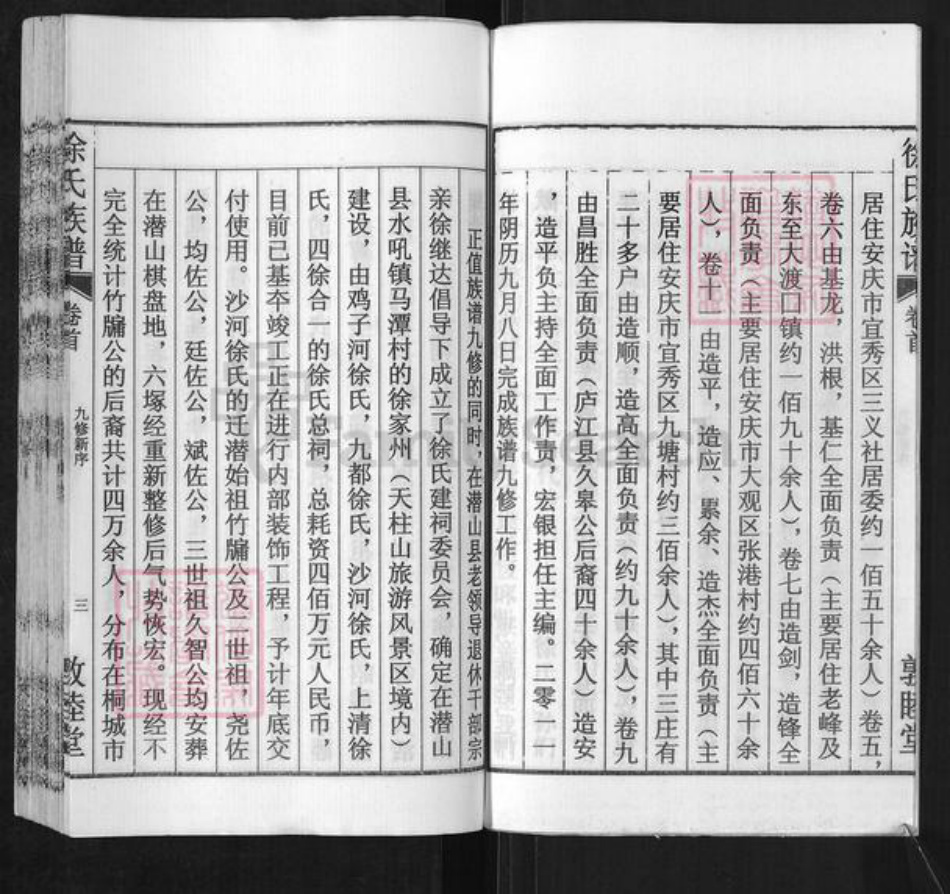 徐氏族谱 卷首
敦睦堂
居住安庆市宜秀区三义社居委约一佰五十余人）卷五，
卷六由基龙，洪根，基仁全面负责（主要居住老峰及
东至大渡口镇约一佰九十余人），卷七由造剑，造锋全
面负责（主要居住安庆市大观区张港村约四佰六十余
人），卷十一由造平，造应、累余、造杰全面负责（主
要居住安庆市宜秀区九塘村约三佰余人），其中三庄有
二十多户由造顺，造高全面负责（约九十余人），卷九
由昌胜全面负责（庐江县久皋公后裔四十余人）造安
，造平负主持全面工作责，宏银担任主编。二零一一
年阴历九月八日完成族谱九修工作。
正值族谱九修的同时，在潜山县老领导退休干部宗
亲徐继达倡导下成立了徐氏建祠委员会，确定在潜山
县水吼镇马潭村的徐家州（天柱山旅游风景区境内）
建设，由鸡子河徐氏，九都徐氏，沙河徐氏，上清徐
氏，四徐合一的徐氏总祠，总耗资四佰万元人民币，
目前已基夲竣工正在进行内部装饰工程，予计年底交
付使用。沙河徐氏的迁潜始祖竹牖公及二世祖，尧佐
公，均佐公，廷佐公，斌佐公，三世祖久智公均安葬
在潜山棋盘地，六塚经重新整修后气势恢宏。现经不
完全统计竹牖公的后裔共计四万余人，分布在桐城市
徐氏族谱 卷首 九修新序 三 敦睦堂